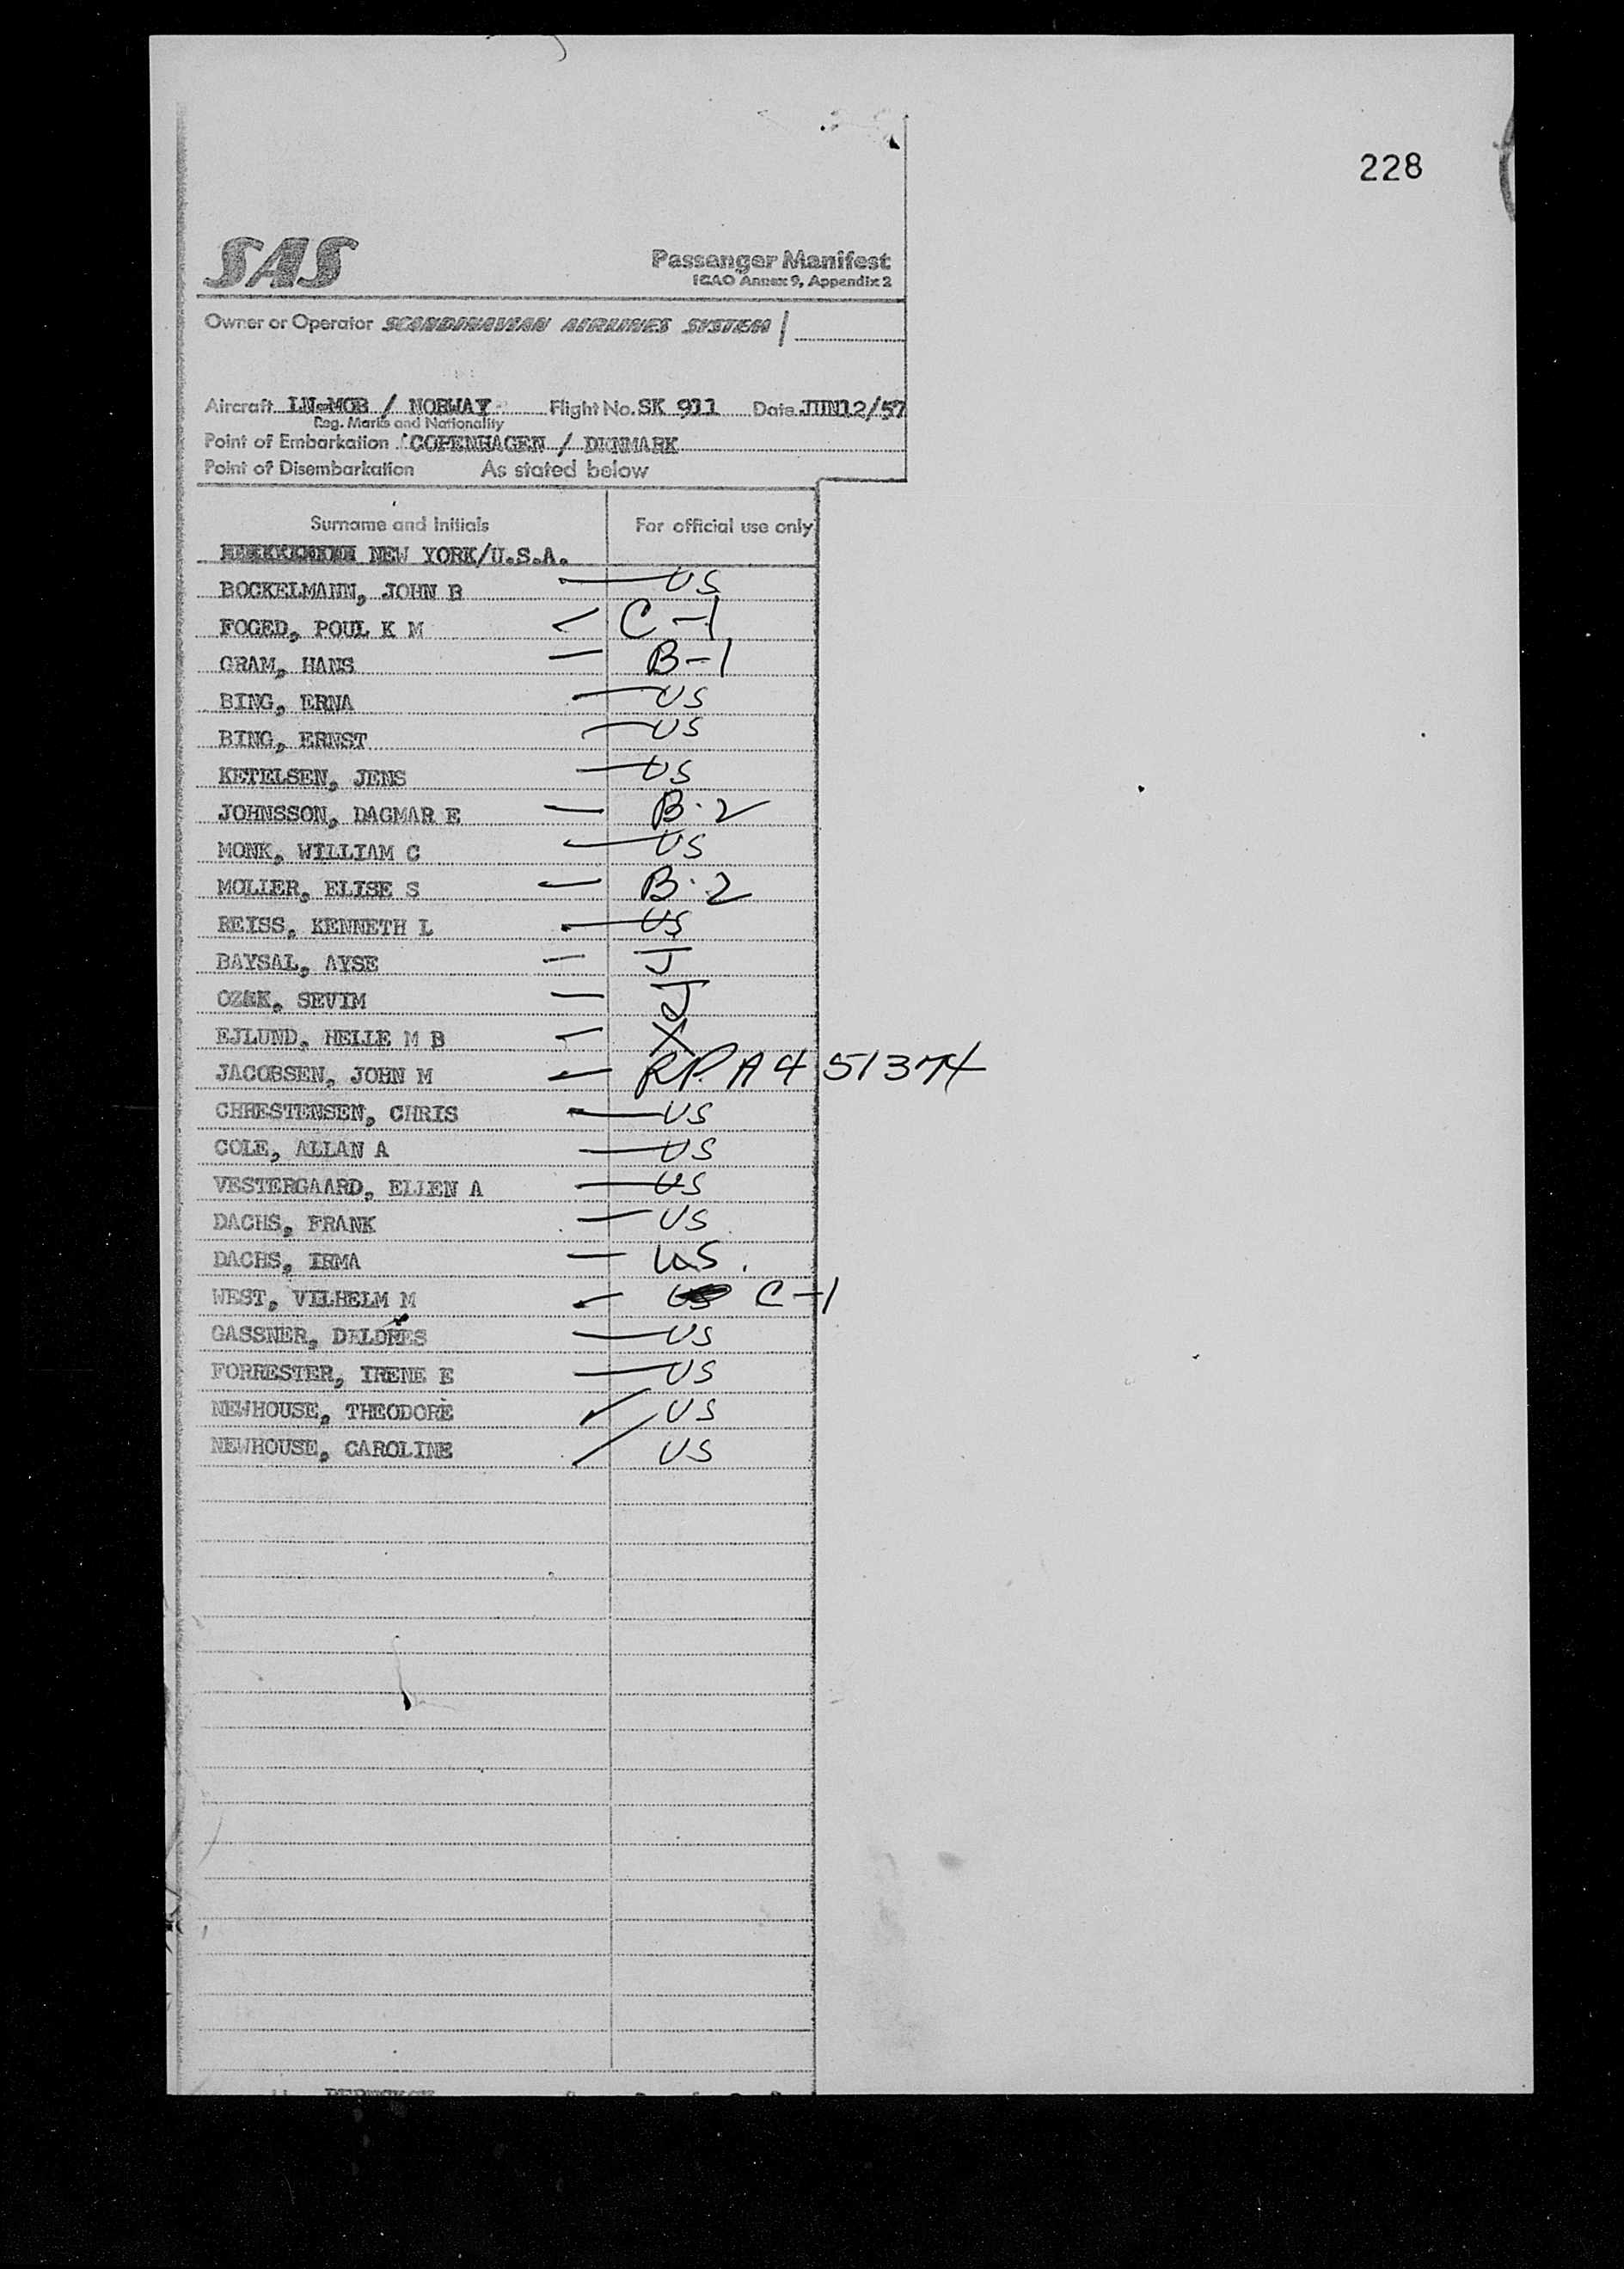 228
SAS
Passenger Manifest
ICAO Annex 9, Appendix 2
Owner or Operator SCANDINAVIAN AIRLINES SYSTEM
Aircraft LN-MOB / NORWAY Flight No. SK 911 Date JUN12/57
Reg. Marks and Nationality
Point of Embarkation COPENHAGEN / DENMARK
Point of Disembarkation As stated below
Surname and Initials For official use only
NEW YORK/U.S.A.
BOCKELMANN, JOHN B US
FOGED, POUL K M C-1
GRAM, HANS B-1
BING, ERNA US
BING, ERNST US
KETELSEN, JENS US
JOHNSSON, DAGMAR E B-2
MONK, WILLIAM C US
MOLLER, ELISE S B-2
REISS, KENNETH L US
BAYSAL, AYSE J
OZEK, SEVIM J
EJLUND, HELLE M B X
JACOBSEN, JOHN M RP. A451374
CHRESTENSEN, CHRIS US
COLE, ALLAN A US
VESTERGAARD, ELLEN A US
DACHS, FRANK US
DACHS, IRMA US.
WEST, VILHELM M C-1
GASSNER, DELORES US
FORRESTER, IRENE E US
NEWHOUSE, THEODORE US
NEWHOUSE, CAROLINE US